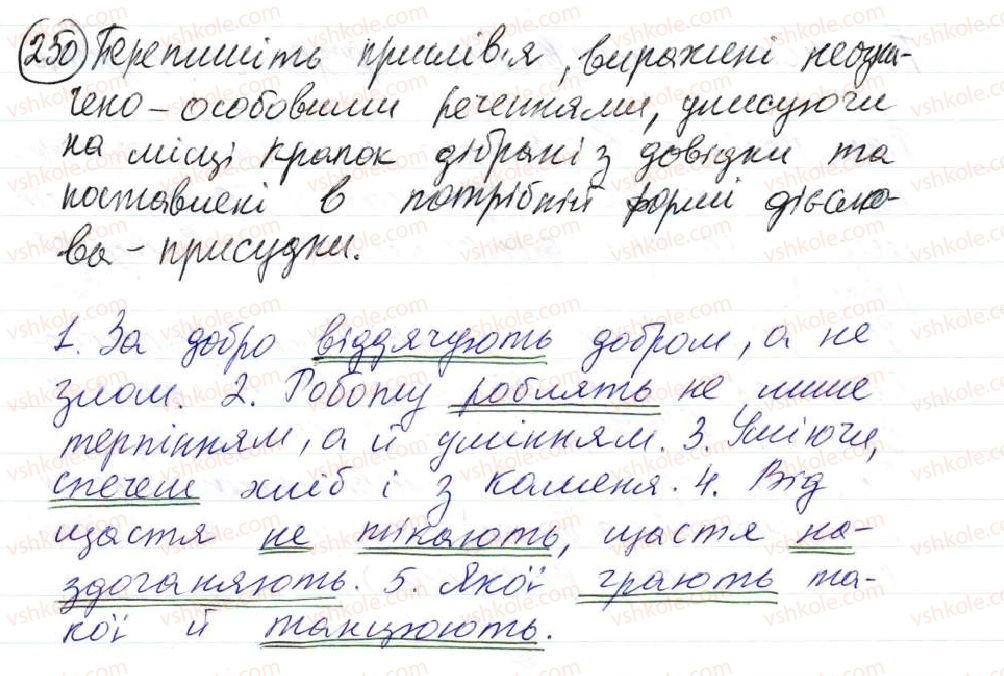 250 Перепишіть прислів'я, виражені неозна-
чено-особовими реченнями, уписуючи
на місці крапок дібрані з довідки та
поставлені в потрібній формі дієсло-
ва-присудки.
1. За добро віддячують добром, а не
злом. 2. Роботу роблять не лише
терпінням, а й умінням. 3. Уміючи,
спечеш хліб і з каменя. 4. Від
щастя не тікають, щастя на-
здоганяють. 5. Якої грають та-
кої й танцюють.